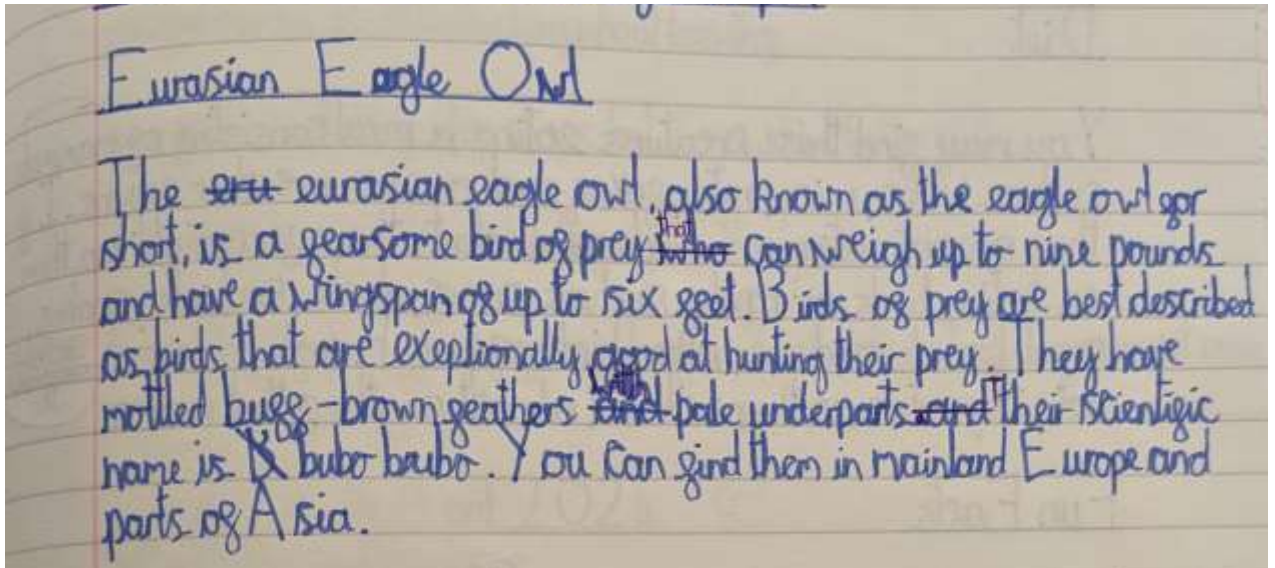 Eurasian Eagle Owl
The eru eurasian eagle owl, also known as the eagle owl for
short, is a fearsome bird of prey who that can weigh up to nine pounds
and have a wingspan of up to six feet. Birds of prey are best described
as birds that are exeptionally good at hunting their prey. They have
mottled buff-brown feathers and pale underparts. and Their scientific
name is bubo bubo. You can find them in mainland Europe and
parts of Asia.